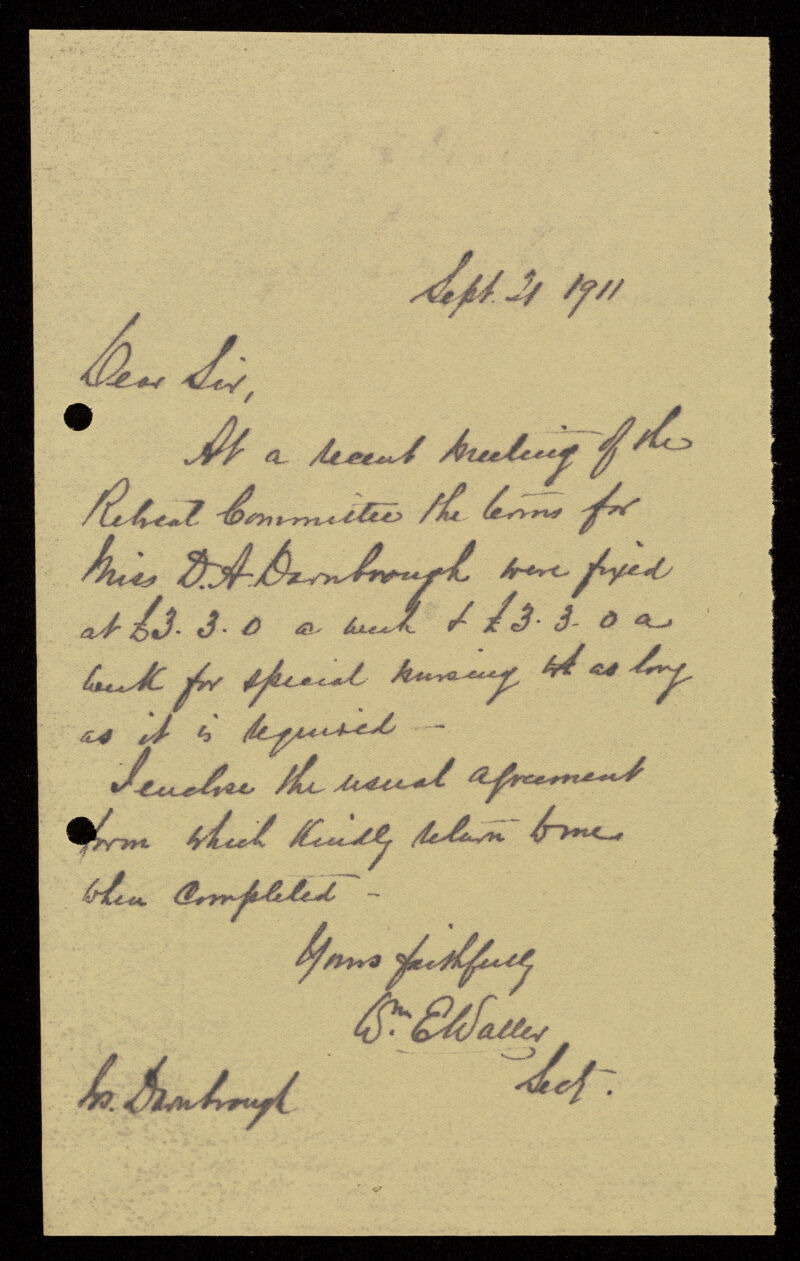 Sept. 21 1911
Dear Sir,
At a recent meeting of the
Retreat Committee the terms for
Miss D. A. Darnbrough were fixed
at £3. 3. 0 a week & £3. 3. 0 a
week for special nursing as long
as it is required —
I enclose the usual agreement
form which kindly return to me
when completed —
Yours faithfully
Wm. E Waller
Secty.
Darnbrough